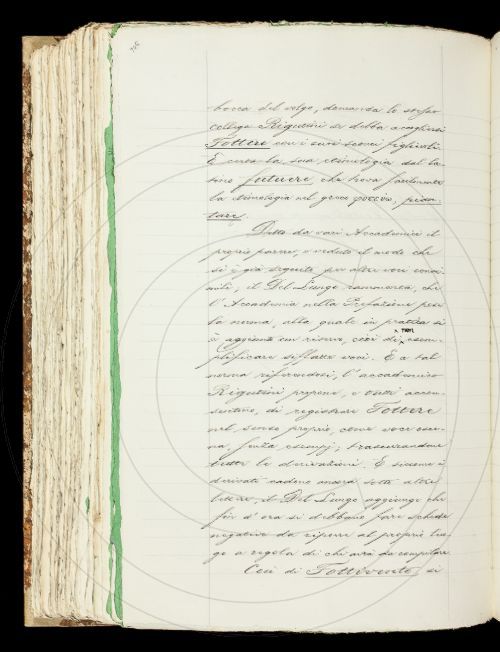 bocca del volgo, domanda lo stesso
collega Rigutini se debba accogliersi
Fottere con i suoi sconci figliuoli.
E circa la sua etimologia dal la-
tino futuere, che trova facilmente
la etimologia nel greco
tare.
Detto da vari Accademici il
proprio parere, e veduto il modo che
si è già seguito per altre voci consi-
mili, il Del Lungo rammenta, che
l'Accademia nella Prefazione pose
la norma, alla quale in pratica si
è aggiunto un riserbo, cioè di non esem-
plificare siffatte voci. E a tal
norma riferendosi, l'accademico
Rigutini propone, e tutti accon-
sentono, di registrare Fottere
nel senso proprio, come voce osce-
na, senza esempj; trascurandone
tutte le derivazioni. E siccome i
derivati cadono ancora sotto altre
lettere, il Del Lungo aggiunge che
fin d'ora si debbano fare schede
negative da riporre al proprio luo-
go a regola di chi avrà da compilare.
Così di Fottivento, si